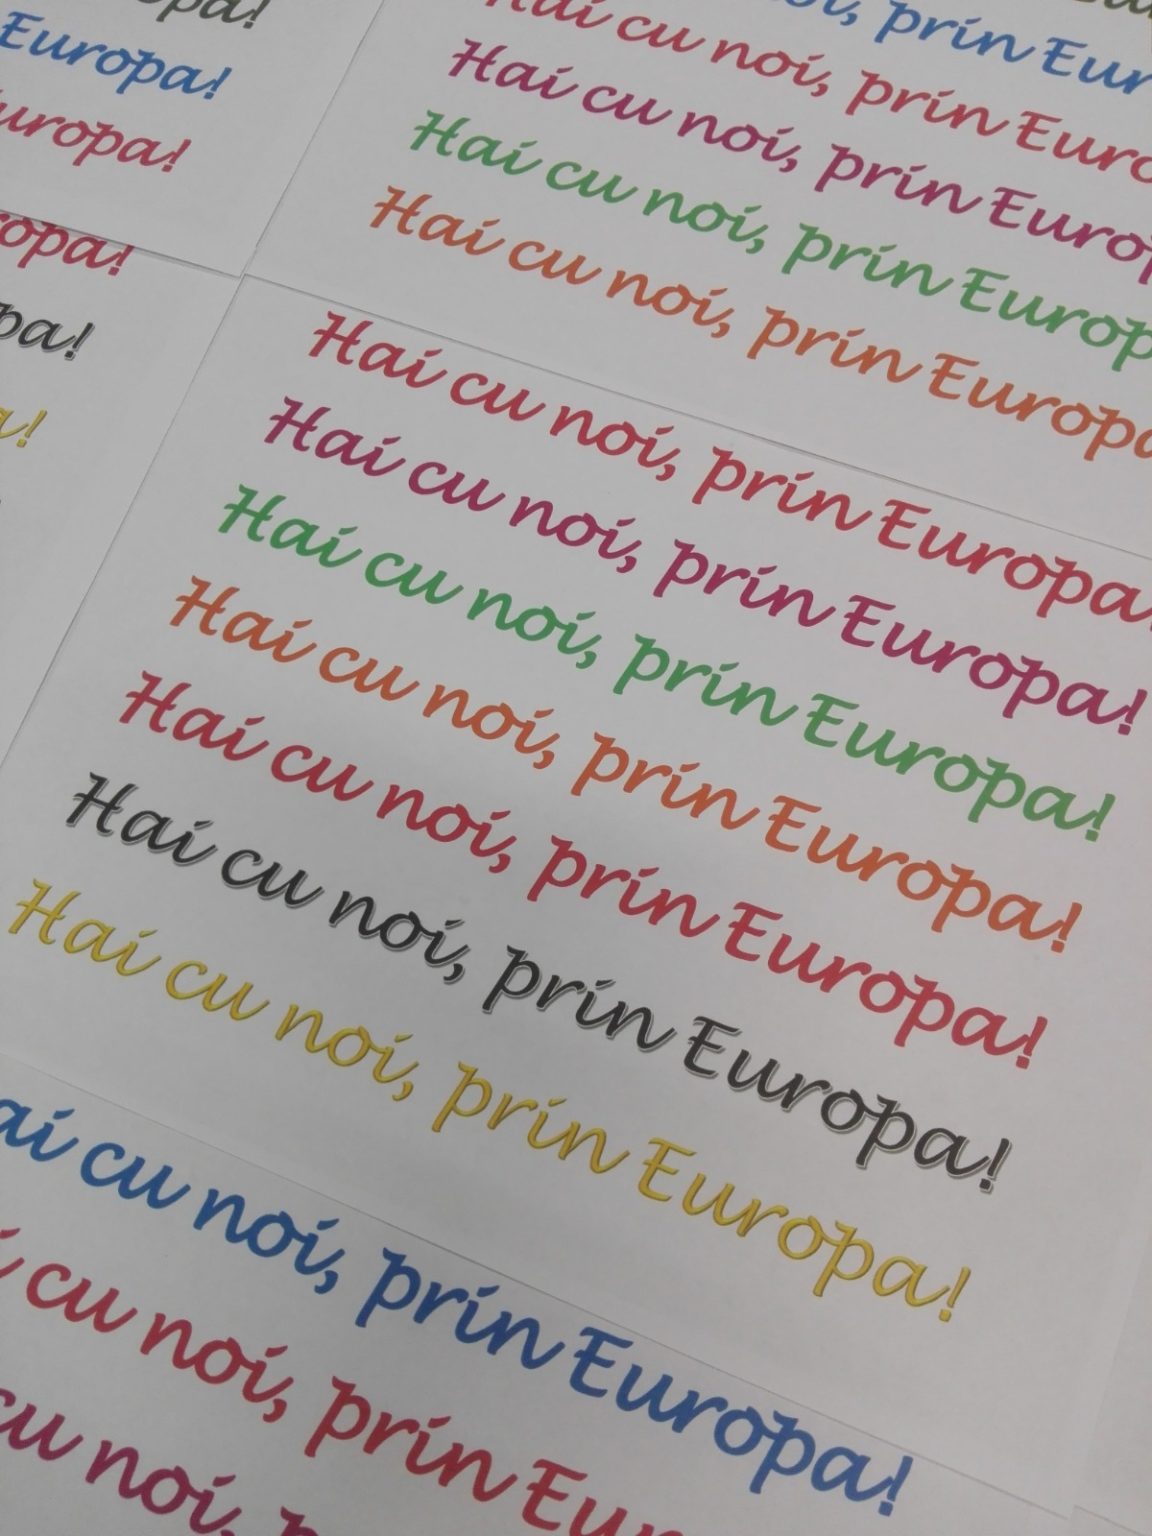 pa!
Europa!
uropa!
ropa!
pa!
a!
noi, prin Eur
Hai cu noi, prin Euro
Hai cu noi, prin Europ
Hai cu noi, prin Europ
Hai cu noi, prin Europa
Hai cu noi, prin Europa!
Hai cu noi, prin Europa!
Hai cu noi, prin Europa!
Hai cu noi, prin Europa!
Hai cu noi, prin Europa!
Hai cu noi, prin Europa!
Hai cu noi, prin Europa!
ai cu noi, prin Europa!
i cu noi, prin Eur
cu noi, p